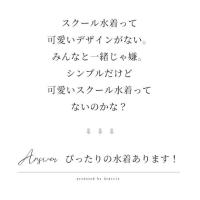 スクール水着って
可愛いデザインがない。
みんなと一緒じゃ嫌。
シンプルだけど
可愛いスクール水着って
ないのかな?
Answer ぴったりの水着あります!
produced by